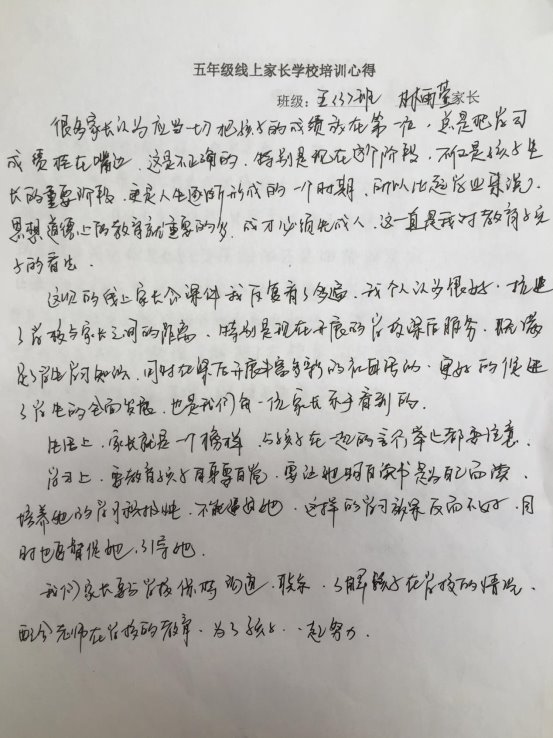 五年级线上家长学校培训心得
班级：五（3）班 林雨萱家长
很多家长认为应当一切把孩子的成绩放在第一位，总是把学习
成绩挂在嘴边，这是不正确的，特别是现在这个阶段，不仅是孩子生
长的重要阶段，更是人生逐渐形成的一个时期，所以比起学业来说，
思想道德上的教育就重要的多，成才必须先成人，这一直是我对教育孩
子的看法。
这次的线上家长会课件我反复看了多遍，我个人认为很好，拉进
了学校与家长之间的距离，特别是现在开展的学校课后服务，既满
足了学生学习知识，同时在课后开展丰富多彩的和的，更好的促进
了学生的全面发展，也是我们每一位家长乐于看到的。
生活上，家长就是一个榜样，与孩子在一起的言行举止都要注意。
学习上，要教育孩子自尊要自爱，要让她明白读书是为自己而读，
培养她的学习积极性，不能逼迫她，这样的学习效果反而不好，同
时也要督促她，引导她。
我们家长要与学校保持沟通，联系，了解孩子在学校的情况，
配合老师在学校的教育，为了孩子，一起努力。